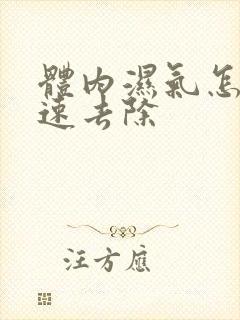 體內濕氣怎
速去除
汪方應